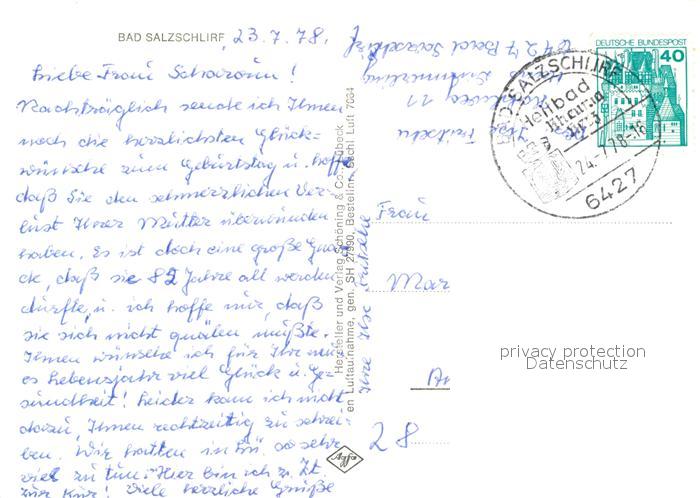 BAD SALZSCHLIRF
23.7.78.
Liebe Frau
Nachträglich sende ich Ihnen
noch die herzlichsten Glück-
wünsche zum Geburtstag u. hoffe
daß Sie den schmerzlichen Ver-
lust Ihrer Mutter überwunden
haben. Es ist doch eine große Gna-
de, daß sie 82 Jahre alt werden
durfte, u. ich hoffe nur, daß
sie sich nicht quälen mußte.
Ihnen wünsche ich für Ihr neu-
es Lebensjahr viel Glück u. Ge-
sundheit! Leider kam ich nicht
dazu, Ihnen rechtzeitig zu schrei-
ben. Wir hatten in so sehr
viel zu tun. Hier bin ich z. Zt.
zur Kur! Viele herzliche Grüße
Ihre Ilse
Hersteller und Verlag Schöning & Co., Lübeck
en Luftaufnahme, gen. SH 27/990, Bestellnr. Sachl. Luft 7034
6427 Bad Salzschlirf
DEUTSCHE BUNDESPOST
40
BAD SALZSCHLIRF
Heilbad
24.-7.78-16
6427
Frau
Mar
An
28
Agfa
privacy protection
Datenschutz